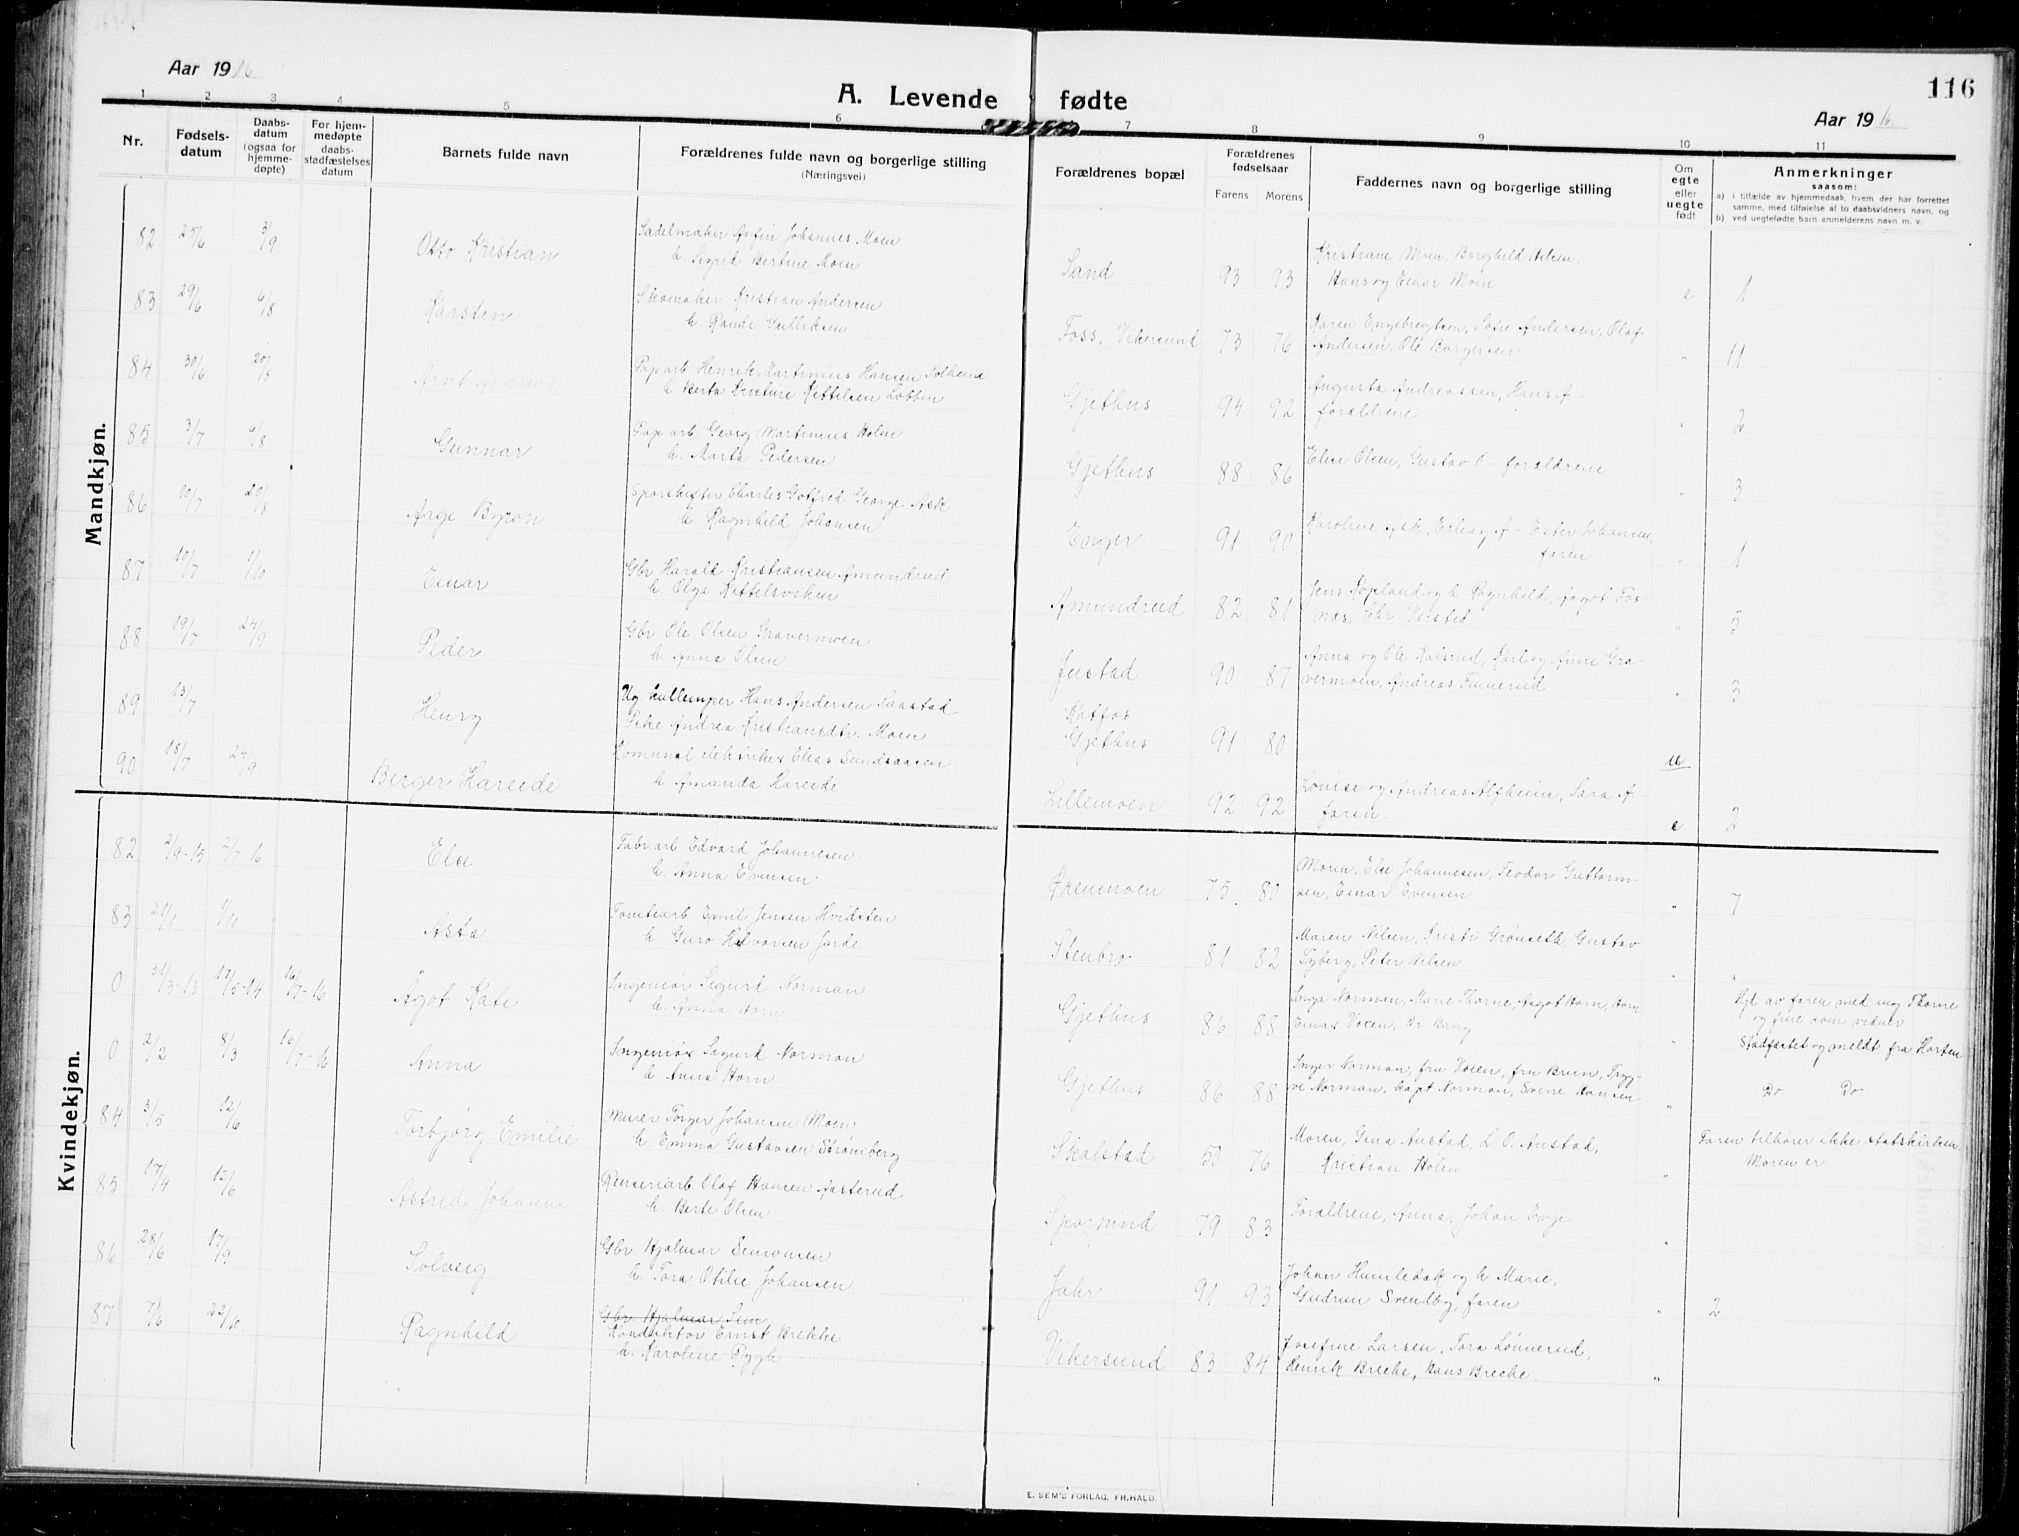 Aar 1916
A. Levende fødte
116
Aar 1916
1 2 3 4 5 6 7 8 9 10 11
Nr.
Fødsels-
datum
Daabs-
datum
(ogsaa for
hjemme-
døpte)
For hjem-
medøpte
daabs-
stadfæstelses
datum
Barnets fulde navn
Forældrenes fulde navn og borgerlige stilling
(Næringsvei)
Forældrenes bopæl
Forældrenes
fødselsaar
Farens Morens
Faddernes navn og borgerlige stilling
Om
egte
eller
uegte
født
Anmerkninger
saasom:
a) i tilfælde av hjemmedaab, hvem der har forrettet
samme, med tilføielse af to daabsvidners navn, og
b) ved uegtefødte barn anmelderens navn m. v.
Mandkjøn.
82 25/6 3/9 Otto Kristian
Sadelmaker Anfin Johannes Moen
h. Sigrid Bertine Moen
Sand 93 93
Kristiane Moen, Borghild Nilsen,
Hans og Einar Moen
e 1
83 29/6 6/8 Karsten
Skomaker Kristian Andersen
h. Randi Gulliksen
Foss, Vikersund 73 76
Karen Engebregtsen, Sofie Andersen, Olaf
Andersen, Ole Borgersen
" 11
84 30/6 20/8 Arnt Andreas
Pap.arb Henrik Martinius Hansen Solheim
h. Berta Kristine Kittelsen Lobben
Gjethus 94 92
Augusta Andreassen, Hans A-
forældrene
" 2
85 3/7 6/8 Gunnar
Pap.arb Georg Martinius Holm
h. Marta Pedersen
Gjethus 88 86
Elise Olsen, Gustav O- forældrene
" 3
86 10/7 20/8 Aage Byron
Sporskifter Charles Gotfred George Ask
h. Ragnhild Johansen
Enger 91 90
Karoline Ask, Erling A- Ester Johansen,
faren
" 1
87 10/7 1/10 Einar
Gbr Harald Kristiansen Amundrud
h. Olga Kittelsviken
Amundrud 82 81
Jens Kopland og h Ragnhild, Aagot Fos-
næs, Chr Versted
" 5
88 19/7 24/9 Peder
Gbr Ole Olsen Gravermoen
h. Anna Olsen
Justad 90 87
Anna og Ole Kolsrud, Karl og Anne Gra-
vermoen, Andreas Finnerud
" 3
89 13/7 Henry
Ug kullemper Hans Andersen Saastad
Pike Andrea Kristiansdtr. Moen
Kotfos
Gjethus 91 80
u
90 18/7 24/9 Berger Hareide
Komunal elektriker Elias Sundsaasen
h. Amanda Hareide
Lillemoen 92 92
Lovise og Andreas Alfheim, Sara A-
faren.
e 2
Kvindekjøn.
82 2/9-15 2/7-16 Else
Fabr.arb Edvard Johannesen
h. Anna Evensen
Ørenmoen 75 80
Moren, Else Johannesen, Teodor Guttorm-
sen, Einar Evensen
" 7
83 21/1 1/10 Asta
Tomtearb Emil Jensen Hvidsten
h. Guro Halvorsen Jorde
Stenbro 81 82
Maren Nilsen, Kristi Grønseth, Gustav
Tyberg, Peter Nilsen
"
0 31/3-13 17/5-14 16/7-16 Ågot Kate
Ingeniør Sigurd Norman
h. Anna Horn
Gjethus 86 88
Inga Norman, Marie Thorne, Aagot Horn, Horn
Einar Voien, Dr. Bang
"
Hjd av faren med ing Thorne
og frue som vidner
Stadfæstet og meldt fra Horten
0 2/2 8/3 16/7-16 Anna
Ingeniør Sigurd Norman
h Anna Horn
Gjethus 86 88
Inger Norman, fru Voien, fru Brun, Tryg-
ve Norman, kapt Norman, Sverre Hansen
"
Do Do
84 3/5 12/6 Torbjørg Emilie
Murer Torger Johansen Moen
h. Emma Gustavsen Strømberg
Skalstad 50 76
Moren, Gina Austad, L. O. Austad,
Kristian Hølen
"
Faren tilhører ikke statskirken,
Moren er
85 17/4 12/6 Astrid Johanne
Renseriarb Olaf Hansen Aasterud
h. Berte Olsen
Sporpind 79 83
Forældrene, Anna, Johan Evje
"
86 28/6 17/9 Solveig
Gbr. Hjalmar Simonsen
h. Tora Otilie Johansen
Johr 91 93
Johan Humledak og h Marie,
Gudrun Svendby, faren
" 2
87 7/6 22/10 Ragnhild
Gbr. Hjalmar Sim
Konduktør Ernst Brekke
h. Karoline Rygh
Vikersund 83 84
Josefine Larsen, Tora Lønnerud,
Henrik Breche, Hans Breche.
"
E. SEM'S FORLAG, FR.HALD.